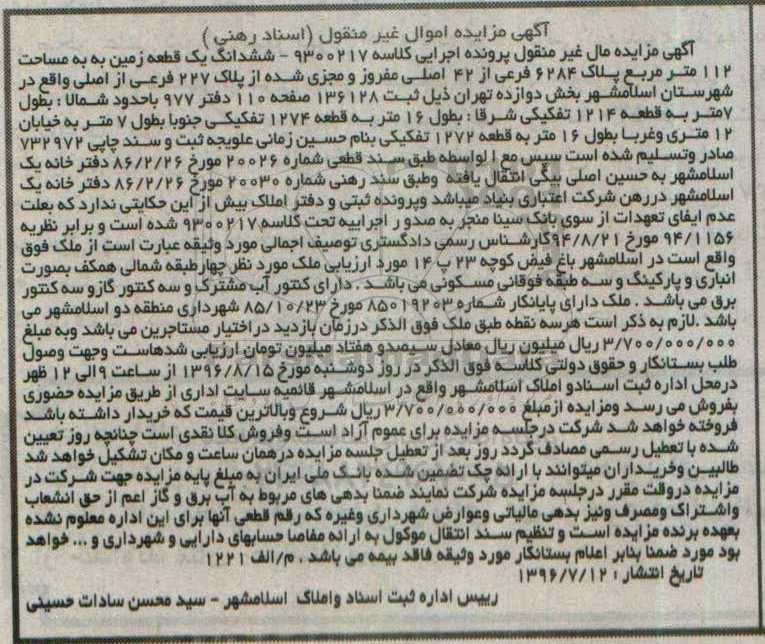 آگهی مزایده اموال غیر منقول (اسناد رهنی)
آگهی مزایده مال غیر منقول پرونده اجرایی کلاسه ۹۳۰۰۲۱۷ - ششدانگ یک قطعه زمین به به مساحت
۱۱۲ متر مربع پلاک ۶۲۸۴ فرعی از ۴۲ اصلی مفروز و مجزی شده از پلاک ۲۲۷ فرعی از اصلی واقع در
شهرستان اسلامشهر بخش دوازده تهران ذیل ثبت ۱۳۶۱۲۸ صفحه ۱۱۰ دفتر ۹۷۷ باحدود شمالا : بطول
۷متر به قطعه ۱۲۱۴ تفکیکی شرقا : بطول ۱۶ متر به قطعه ۱۲۷۴ تفکیکی جنوبا بطول ۷ متر به خیابان
۱۲ متری وغربا بطول ۱۶ متر به قطعه ۱۲۷۲ تفکیکی بنام حسین زمانی علویجه ثبت و سند چاپی ۷۳۲۹۷۲
صادر وتسلیم شده است سپس مع ا لواسطه طبق سند قطعی شماره ۲۰۰۲۶ مورخ ۸۶/۲/۲۶ دفتر خانه یک
اسلامشهر به حسین اصلی بیگی انتقال یافته وطبق سند رهنی شماره ۲۰۰۳۰ مورخ ۸۶/۲/۲۶ دفتر خانه یک
اسلامشهر دررهن شرکت اعتباری بنیاد میباشد وپرونده ثبتی و دفتر املاک بیش از این حکایتی ندارد که بعلت
عدم ایفای تعهدات از سوی بانک سینا منجر به صدو ر اجراییه تحت کلاسه ۹۳۰۰۲۱۷ شده است و برابر نظریه
۹۴/۱۱۵۶ مورخ ۹۴/۸/۲۱کارشناس رسمی دادگستری توصیف اجمالی مورد وثیقه عبارت است از ملک فوق
واقع است در اسلامشهر باغ فیض کوچه ۲۳ پ ۱۴ مورد ارزیابی ملک مورد نظر چهارطبقه شمالی همکف بصورت
انباری و پارکینگ و سه طبقه فوقانی مسکونی می باشد . دارای کنتور آب مشترک و سه کنتور گازو سه کنتور
برق می باشد . ملک دارای پایانکار شماره ۸۵۰۱۹۲۰۳ مورخ ۸۵/۱۰/۲۳ شهرداری منطقه دو اسلامشهر می
باشد .لازم به ذکر است هرسه نقطه طبق ملک فوق الذکر درزمان بازدید دراختیار مستاجرین می باشد وبه مبلغ
۳/۷۰۰/۰۰۰/۰۰۰ ریال میلیون ریال معادل سیصدو هفتاد میلیون تومان ارزیابی شدهاست وجهت وصول
طلب بستانکار و حقوق دولتی کلاسه فوق الذکر در روز دوشنبه مورخ ۱۳۹۶/۸/۱۵ از ساعت ۹ الی ۱۲ ظهر
درمحل اداره ثبت اسنادو املاک اسلامشهر واقع در اسلامشهر قائمیه سایت اداری از طریق مزایده حضوری
بفروش می رسد ومزایده ازمبلغ ۳/۷۰۰/۰۰۰/۰۰۰ ریال شروع وبالاترین قیمت که خریدار داشته باشد
فروخته خواهد شد شرکت درجلسه مزایده برای عموم آزاد است وفروش کلا نقدی است چنانچه روز تعیین
شده با تعطیل رسمی مصادف گردد روز بعد از تعطیل جلسه مزایده درهمان ساعت و مکان تشکیل خواهد شد
طالبین وخریداران میتوانند با ارائه چک تضمین شده بانک ملی ایران به مبلغ پایه مزایده جهت شرکت در
مزایده دروقت مقرر درجلسه مزایده شرکت نمایند ضمنا بدهی های مربوط به آب برق و گاز اعم از حق انشعاب
واشتراک ومصرف ونیز بدهی مالیاتی وعوارض شهرداری وغیره که رقم قطعی آنها برای این اداره معلوم نشده
بعهده برنده مزایده است و تنظیم سند انتقال موکول به ارائه مفاصا حسابهای دارایی و شهرداری و ... خواهد
بود مورد ضمنا بنابر اعلام بستانکار مورد وثیقه فاقد بیمه می باشد . م/الف ۱۲۲۱
تاریخ انتشار : ۱۳۹۶/۷/۱۲
رییس اداره ثبت اسناد واملاک اسلامشهر - سید محسن سادات حسینی